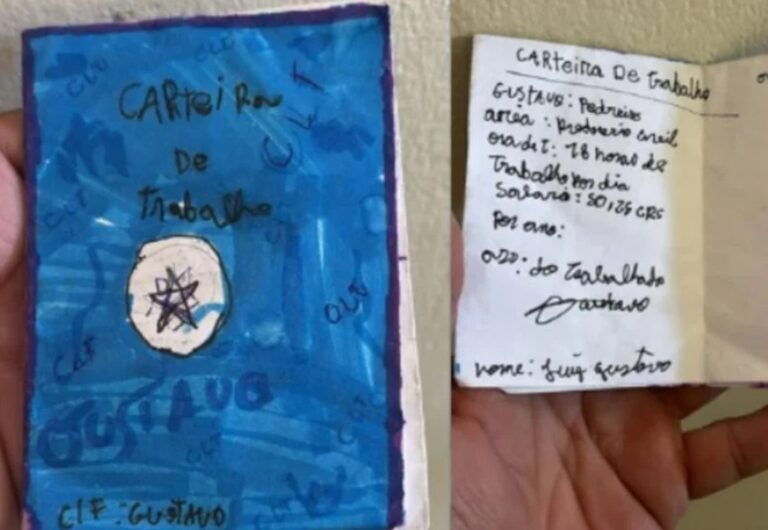 CLT
CLT
CLT
CARTEiRa
De
Trabalho
CLT
CLT
CLT
CLT
GUSTAVO
CLT
CLT
CLF : GUSTAVO
CARTeira De trabalho
GUSTAVO: Pedreiro
area :
ora de T: 18 horas de
Trabalho Por dia
Salario : 50,25 CRS
Por ano:
do Trabalhado
Gustavo
nome: Luiz gustavo